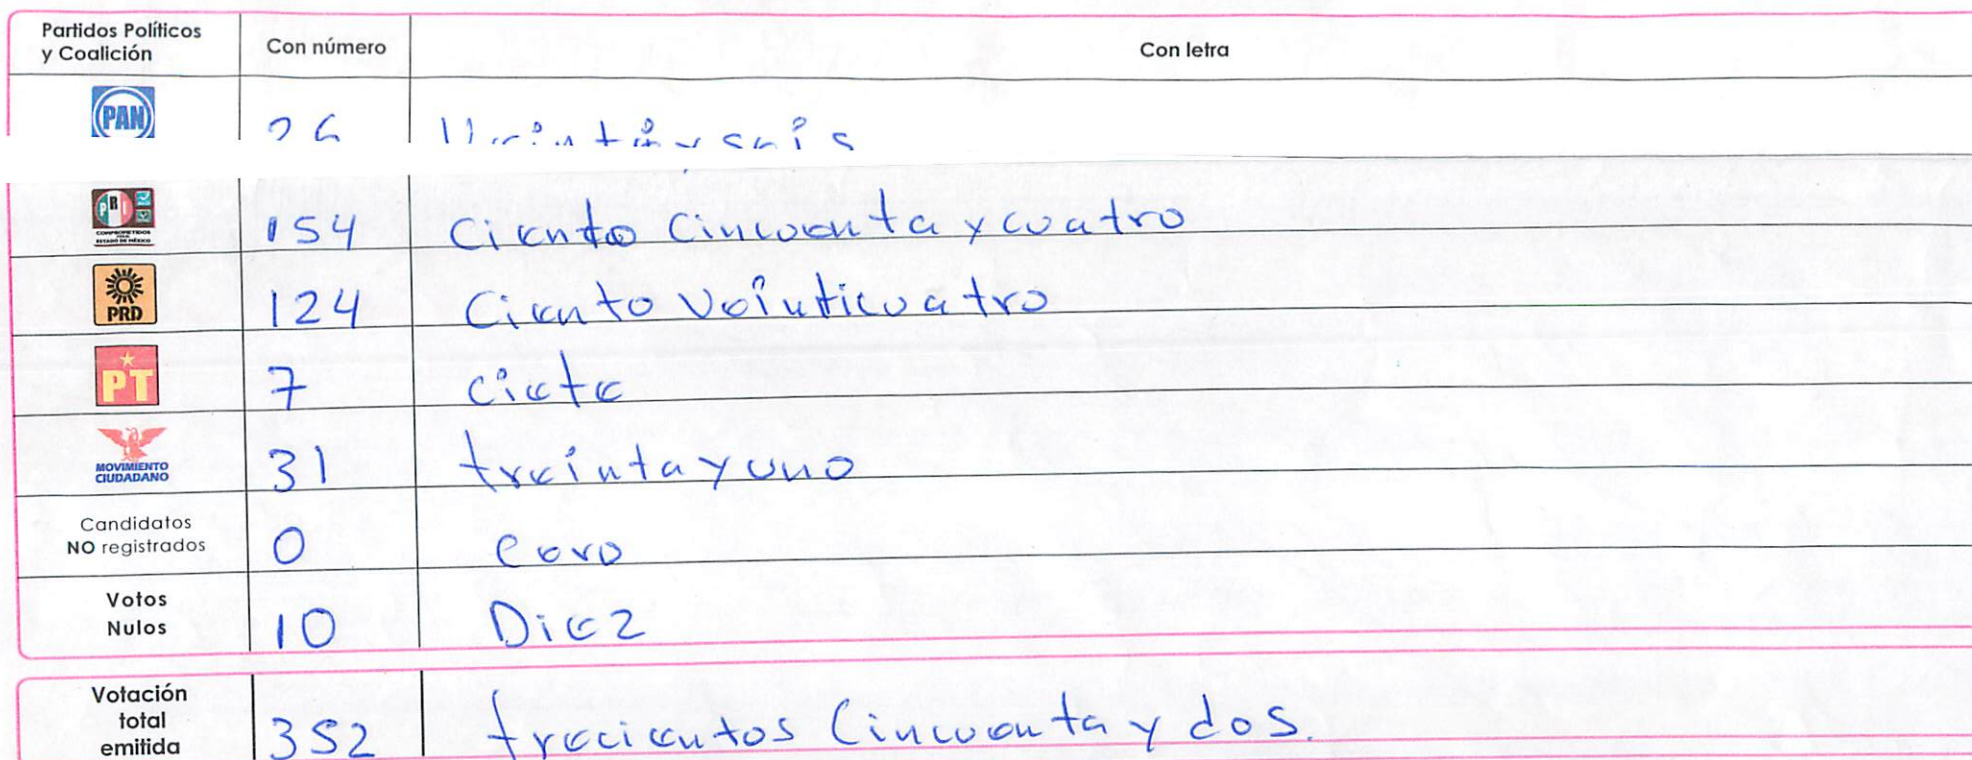 Partidos Políticos y Coalición Con número Con letra
PAN 26 Veintiyseis
PRI COMPROMETIDOS ESTADO DE MÉXICO 154 Ciento Cincuenta y cuatro
PRD 124 Ciento Veinticuatro
PT 7 ciete
MOVIMIENTO CIUDADANO 31 treinta y uno
Candidatos NO registrados 0 Cero
Votos Nulos 10 Diez
Votación total emitida 352 trecientos Cincuenta y dos.